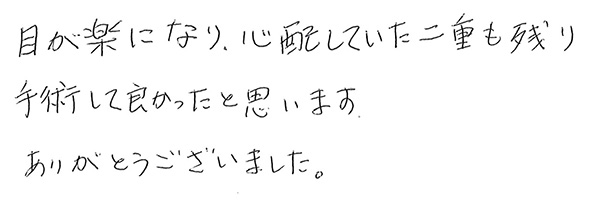 目が楽になり、心配していた二重も残り
手術して良かったと思います
ありがとうございました。